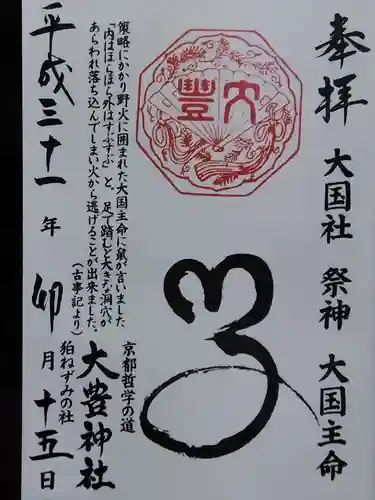 奉拝
大国社 祭神 大国主命
大豐
策略にかかり野火に囲まれた大国主命に鼠が言いました
「内はほらほら外はすぶすぶ」と、足で踏むと大きな洞穴が
あらわれ落ち込んでしまい火から逃げることが出来ました。
(古事記より)
京都哲学の道
大豊神社
狛ねずみの社
平成三十一年 卯月十五日